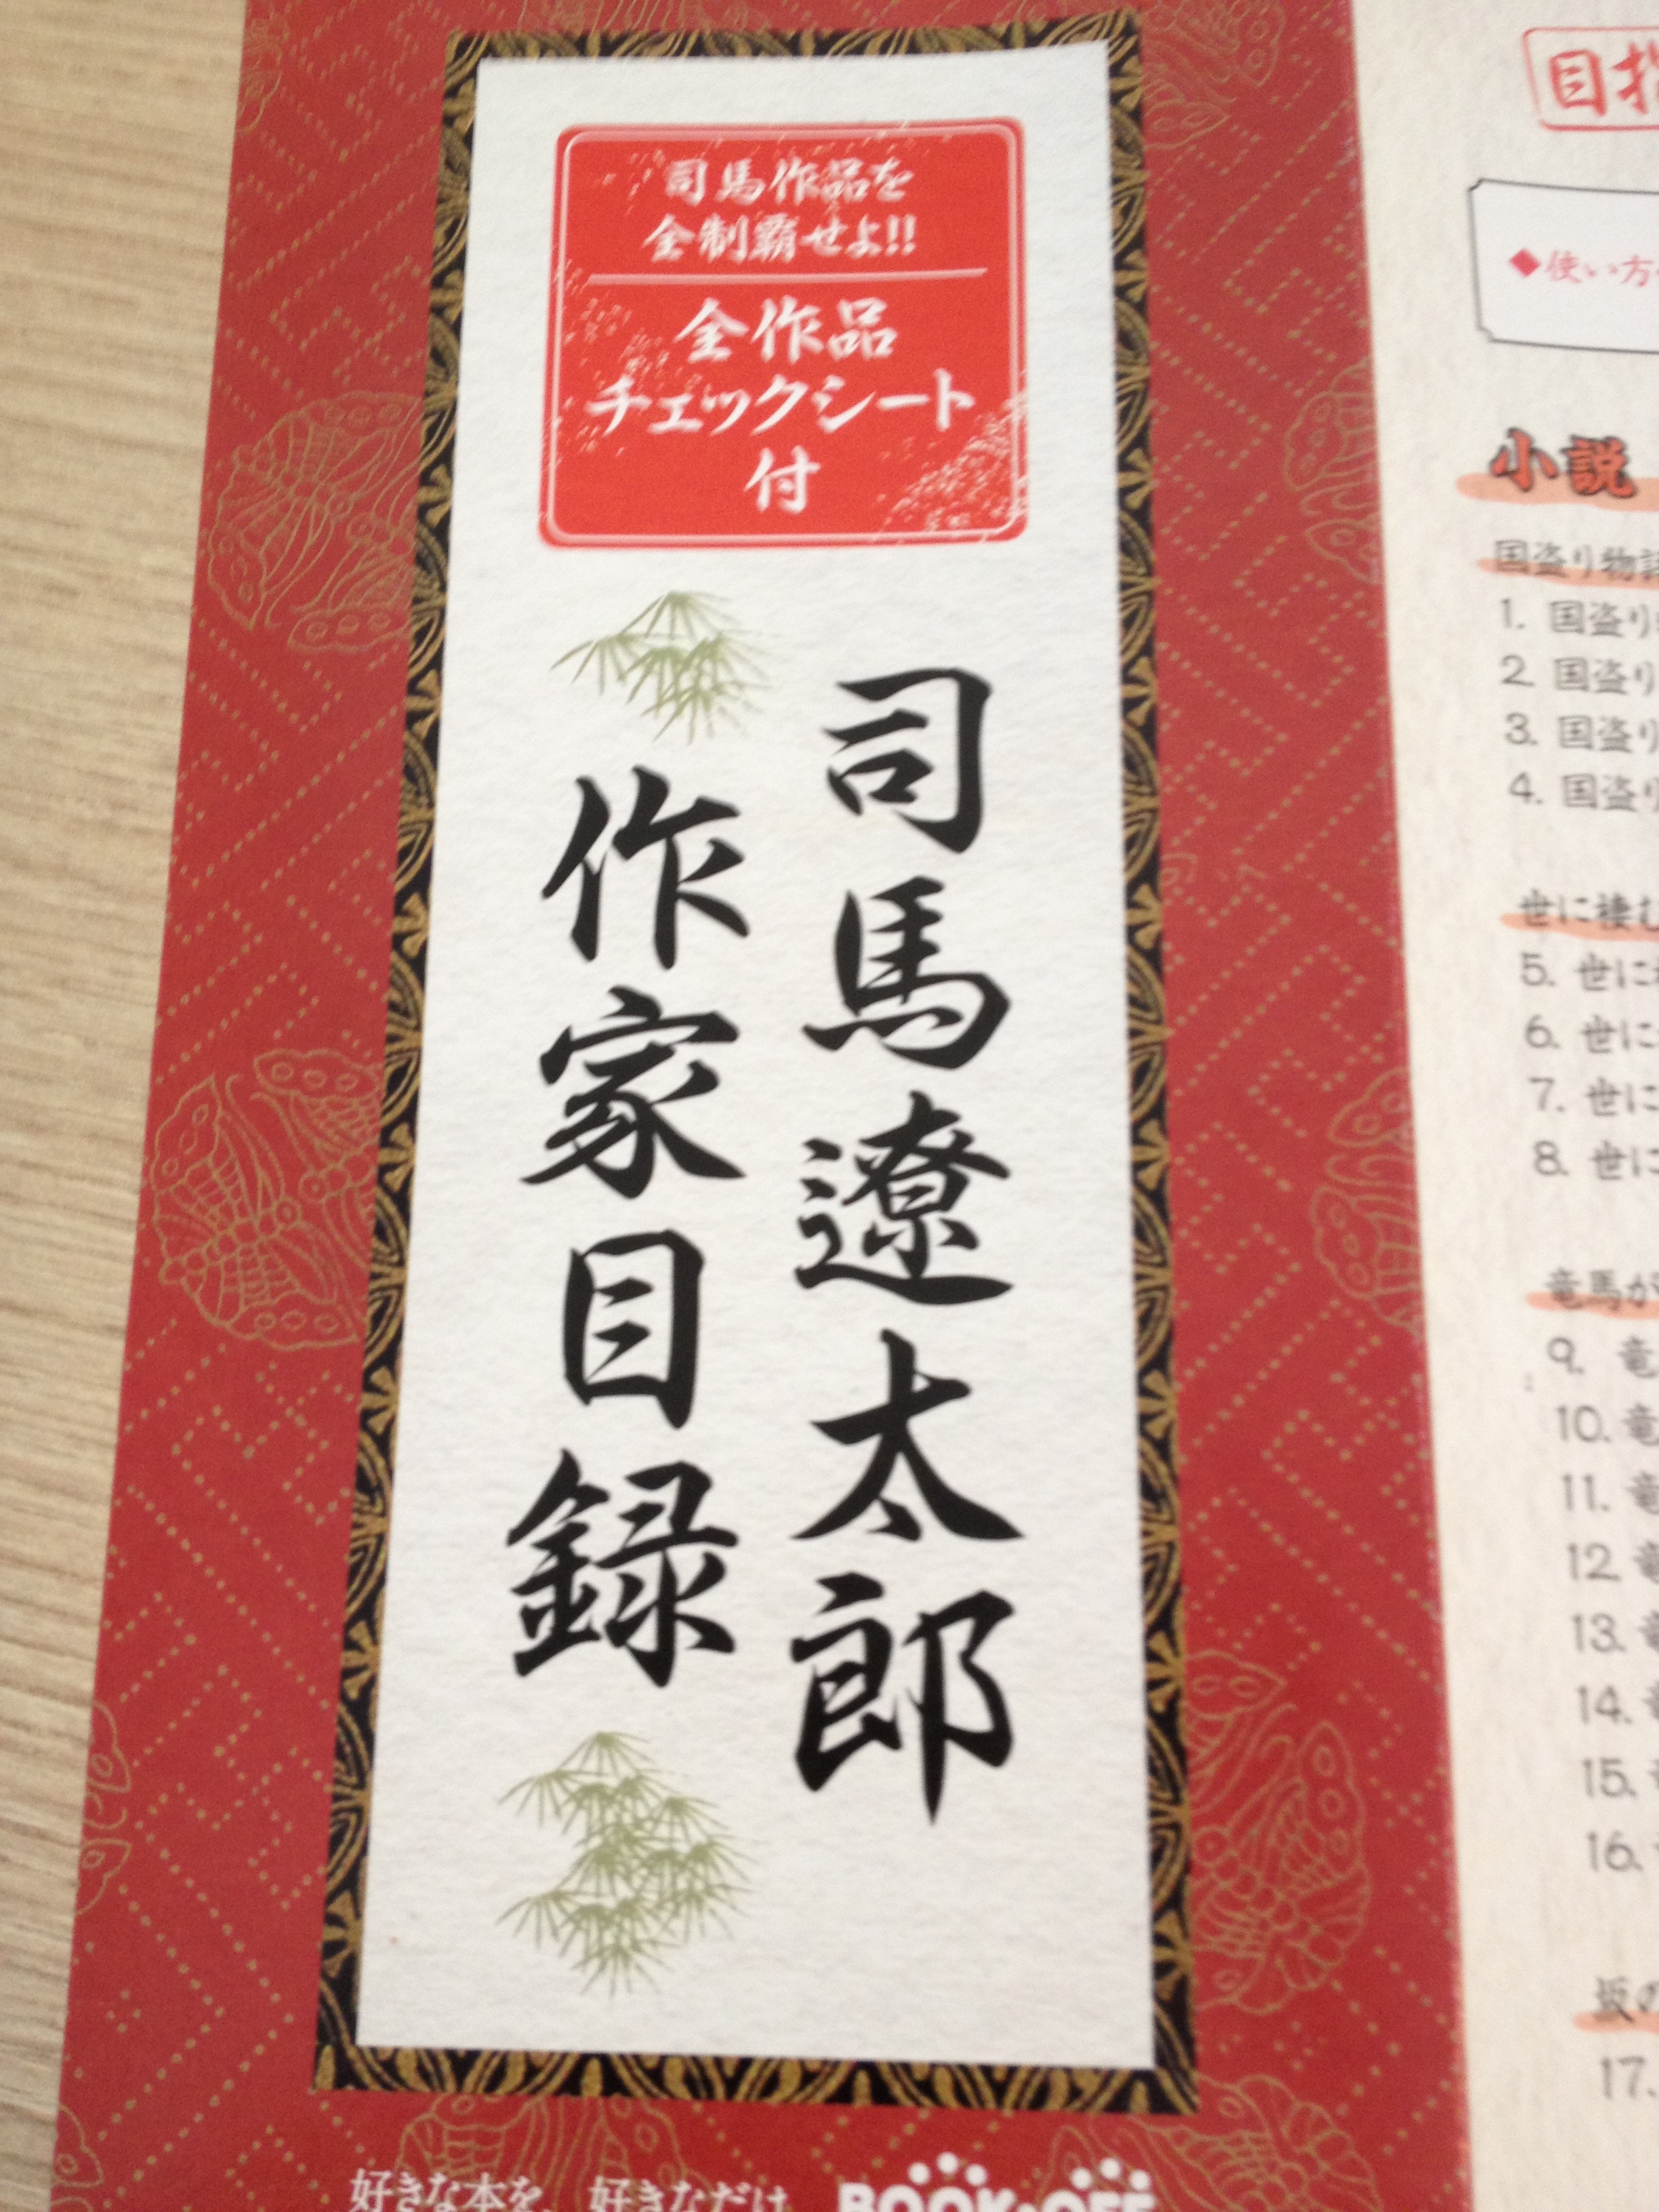 司馬作品を
全制覇せよ!!
全作品
チェックシート
付
司馬遼太郎
作家目録
好きな本を、好きなだけ
BOOK・OFF
目指
◆使い方
小説
国盗り物語
1. 国盗り
2. 国盗り
3. 国盗り
4. 国盗り
世に棲む
5. 世に
6. 世に
7. 世に
8. 世に
竜馬が
9. 竜
10. 竜
11. 竜
12. 竜
13. 竜
14.
15.
16.
坂の
17.